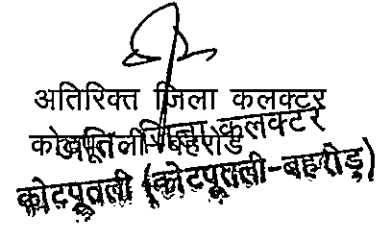 अतिरिक्त जिला कलक्टर
कोटपूतली-बहरोड
जिला कलक्टर
कोटपूतली (कोटपूतली-बहरोड़)